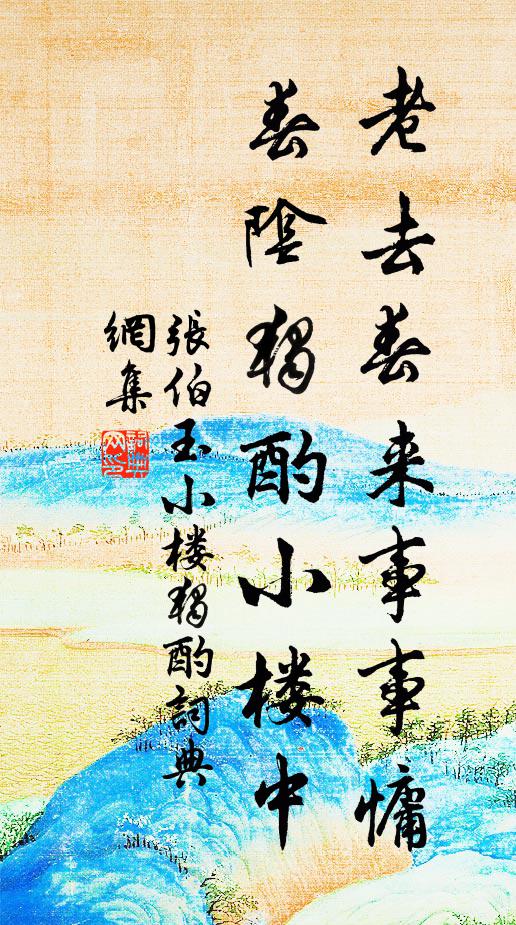 老去春来事事慵
春陰独酌小楼中
張伯玉小楼独酌詞典
網集